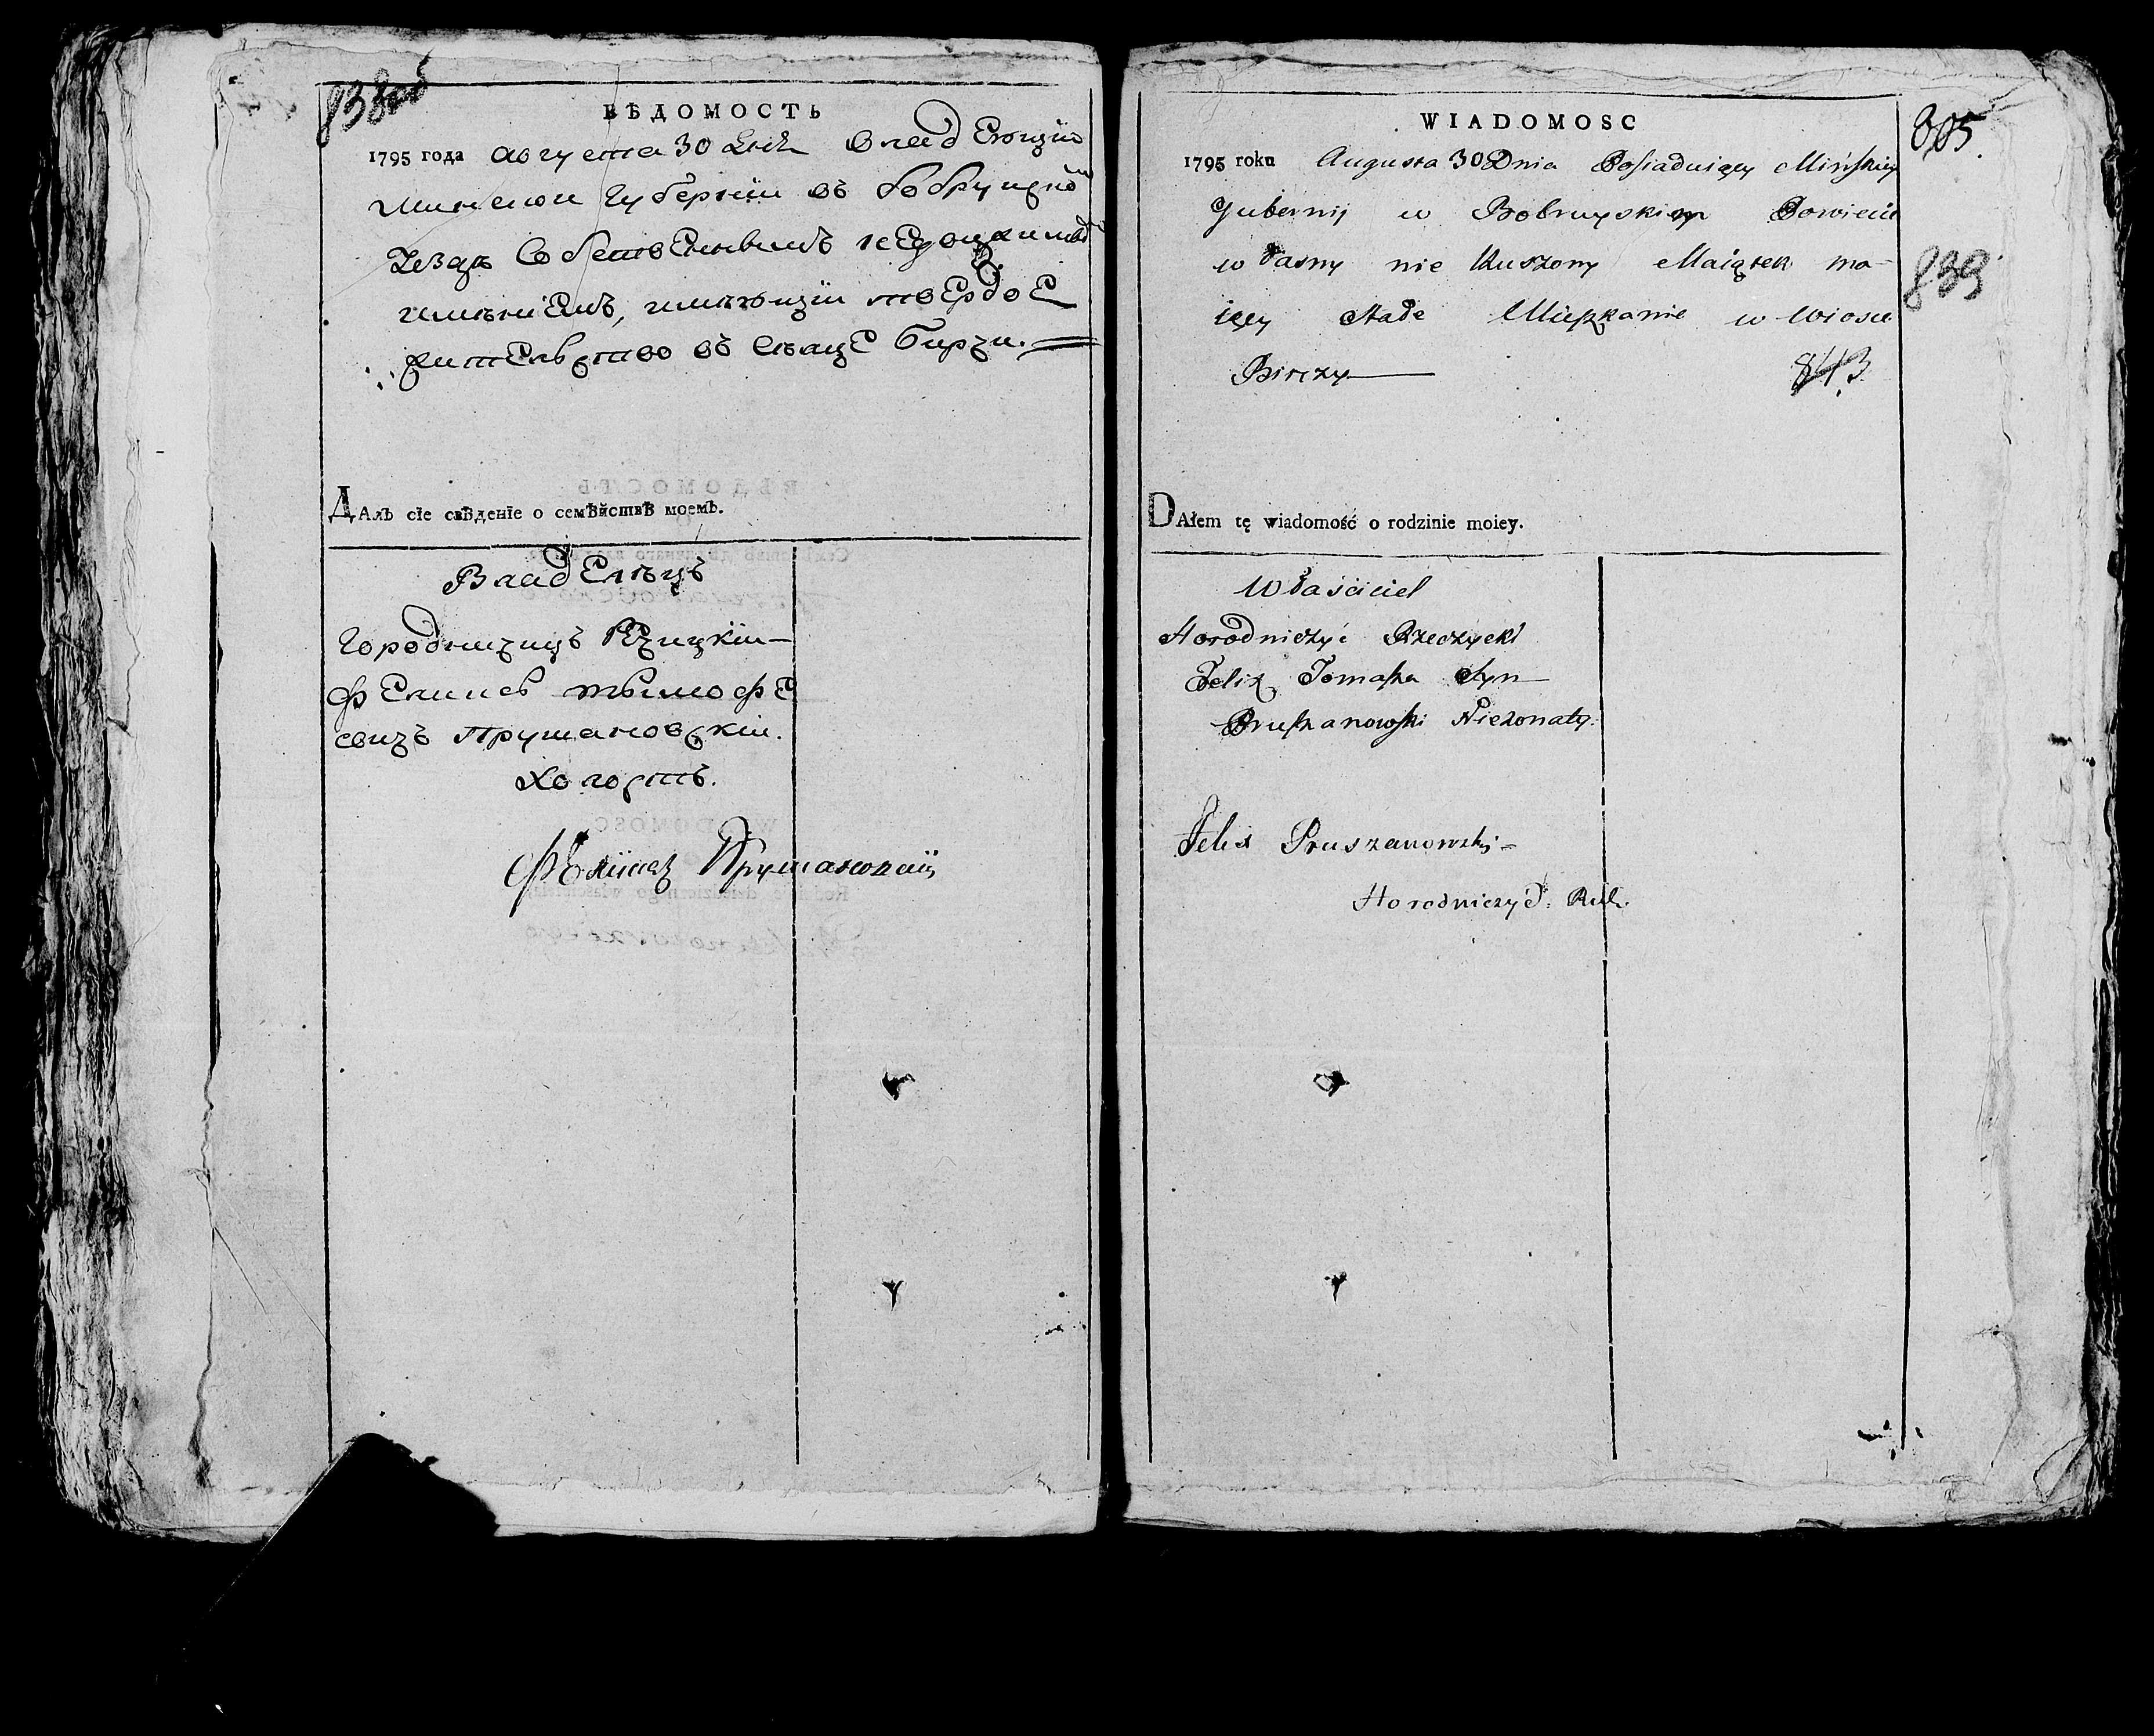 838 об
ВѢДОМОСТЬ
1795 года августа 30 дня владеющій
минской губерніи въ бобруцкомъ
уезде собственнымъ недвижимымъ
имѣніемъ, имѣющій твердое
жителство въ селце бирчи.
Далъ сіе свѣденіе о семѣйствѣ моемъ.
Владелецъ
Городничицъ Речицкій
Феликсъ Тымофе
евичъ Прушановскій.
холостъ.
Феликсъ Прушановскій
WIADOMOSC
805
1795 roku Augusta 30 Dnia Posiaduiący Mińskiey
Gubernij w Bobruyskim Powiecie
własny nie Ruszony Maiątek ma-
839
iący stałe Mieszkanie w Wiosce
Birczy
843
DAłem tę wiadomość o rodzinie moiey.
Właściciel
Horodniczyc Rzeczycki
Felix Tomasza Syn
Pruszanowski Nieżonaty.
Felix Pruszanowski
Horodniczyc